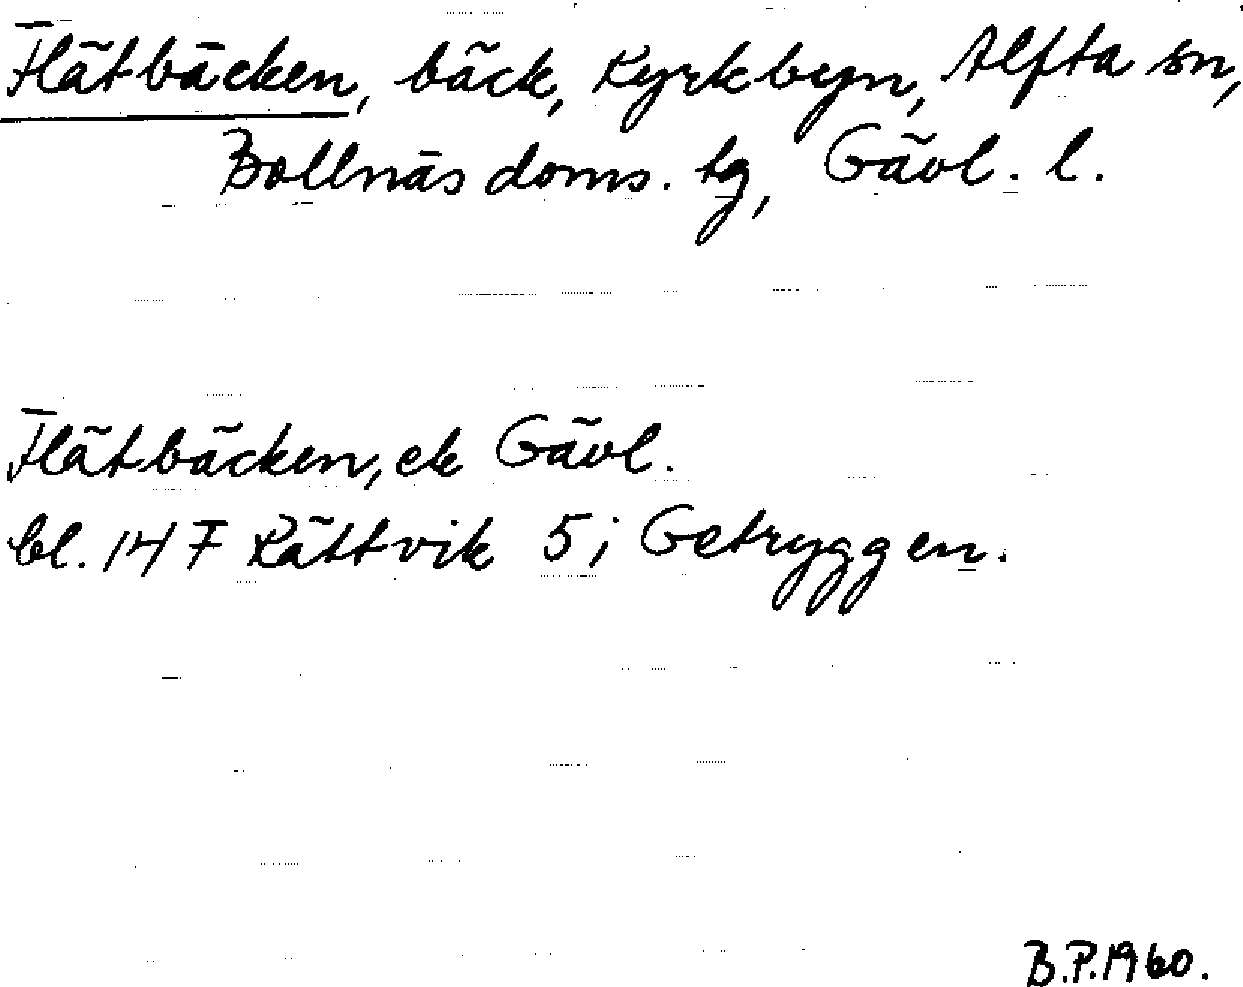 Flätbäcken, bäck, Kyrkbyn, Alfta sn,
Bollnäs doms. tg, Gävl. l.
Flätbäcken, ek Gävl.
bl. 14 F Rättvik 5 i Getryggen.
B.P. 1960.